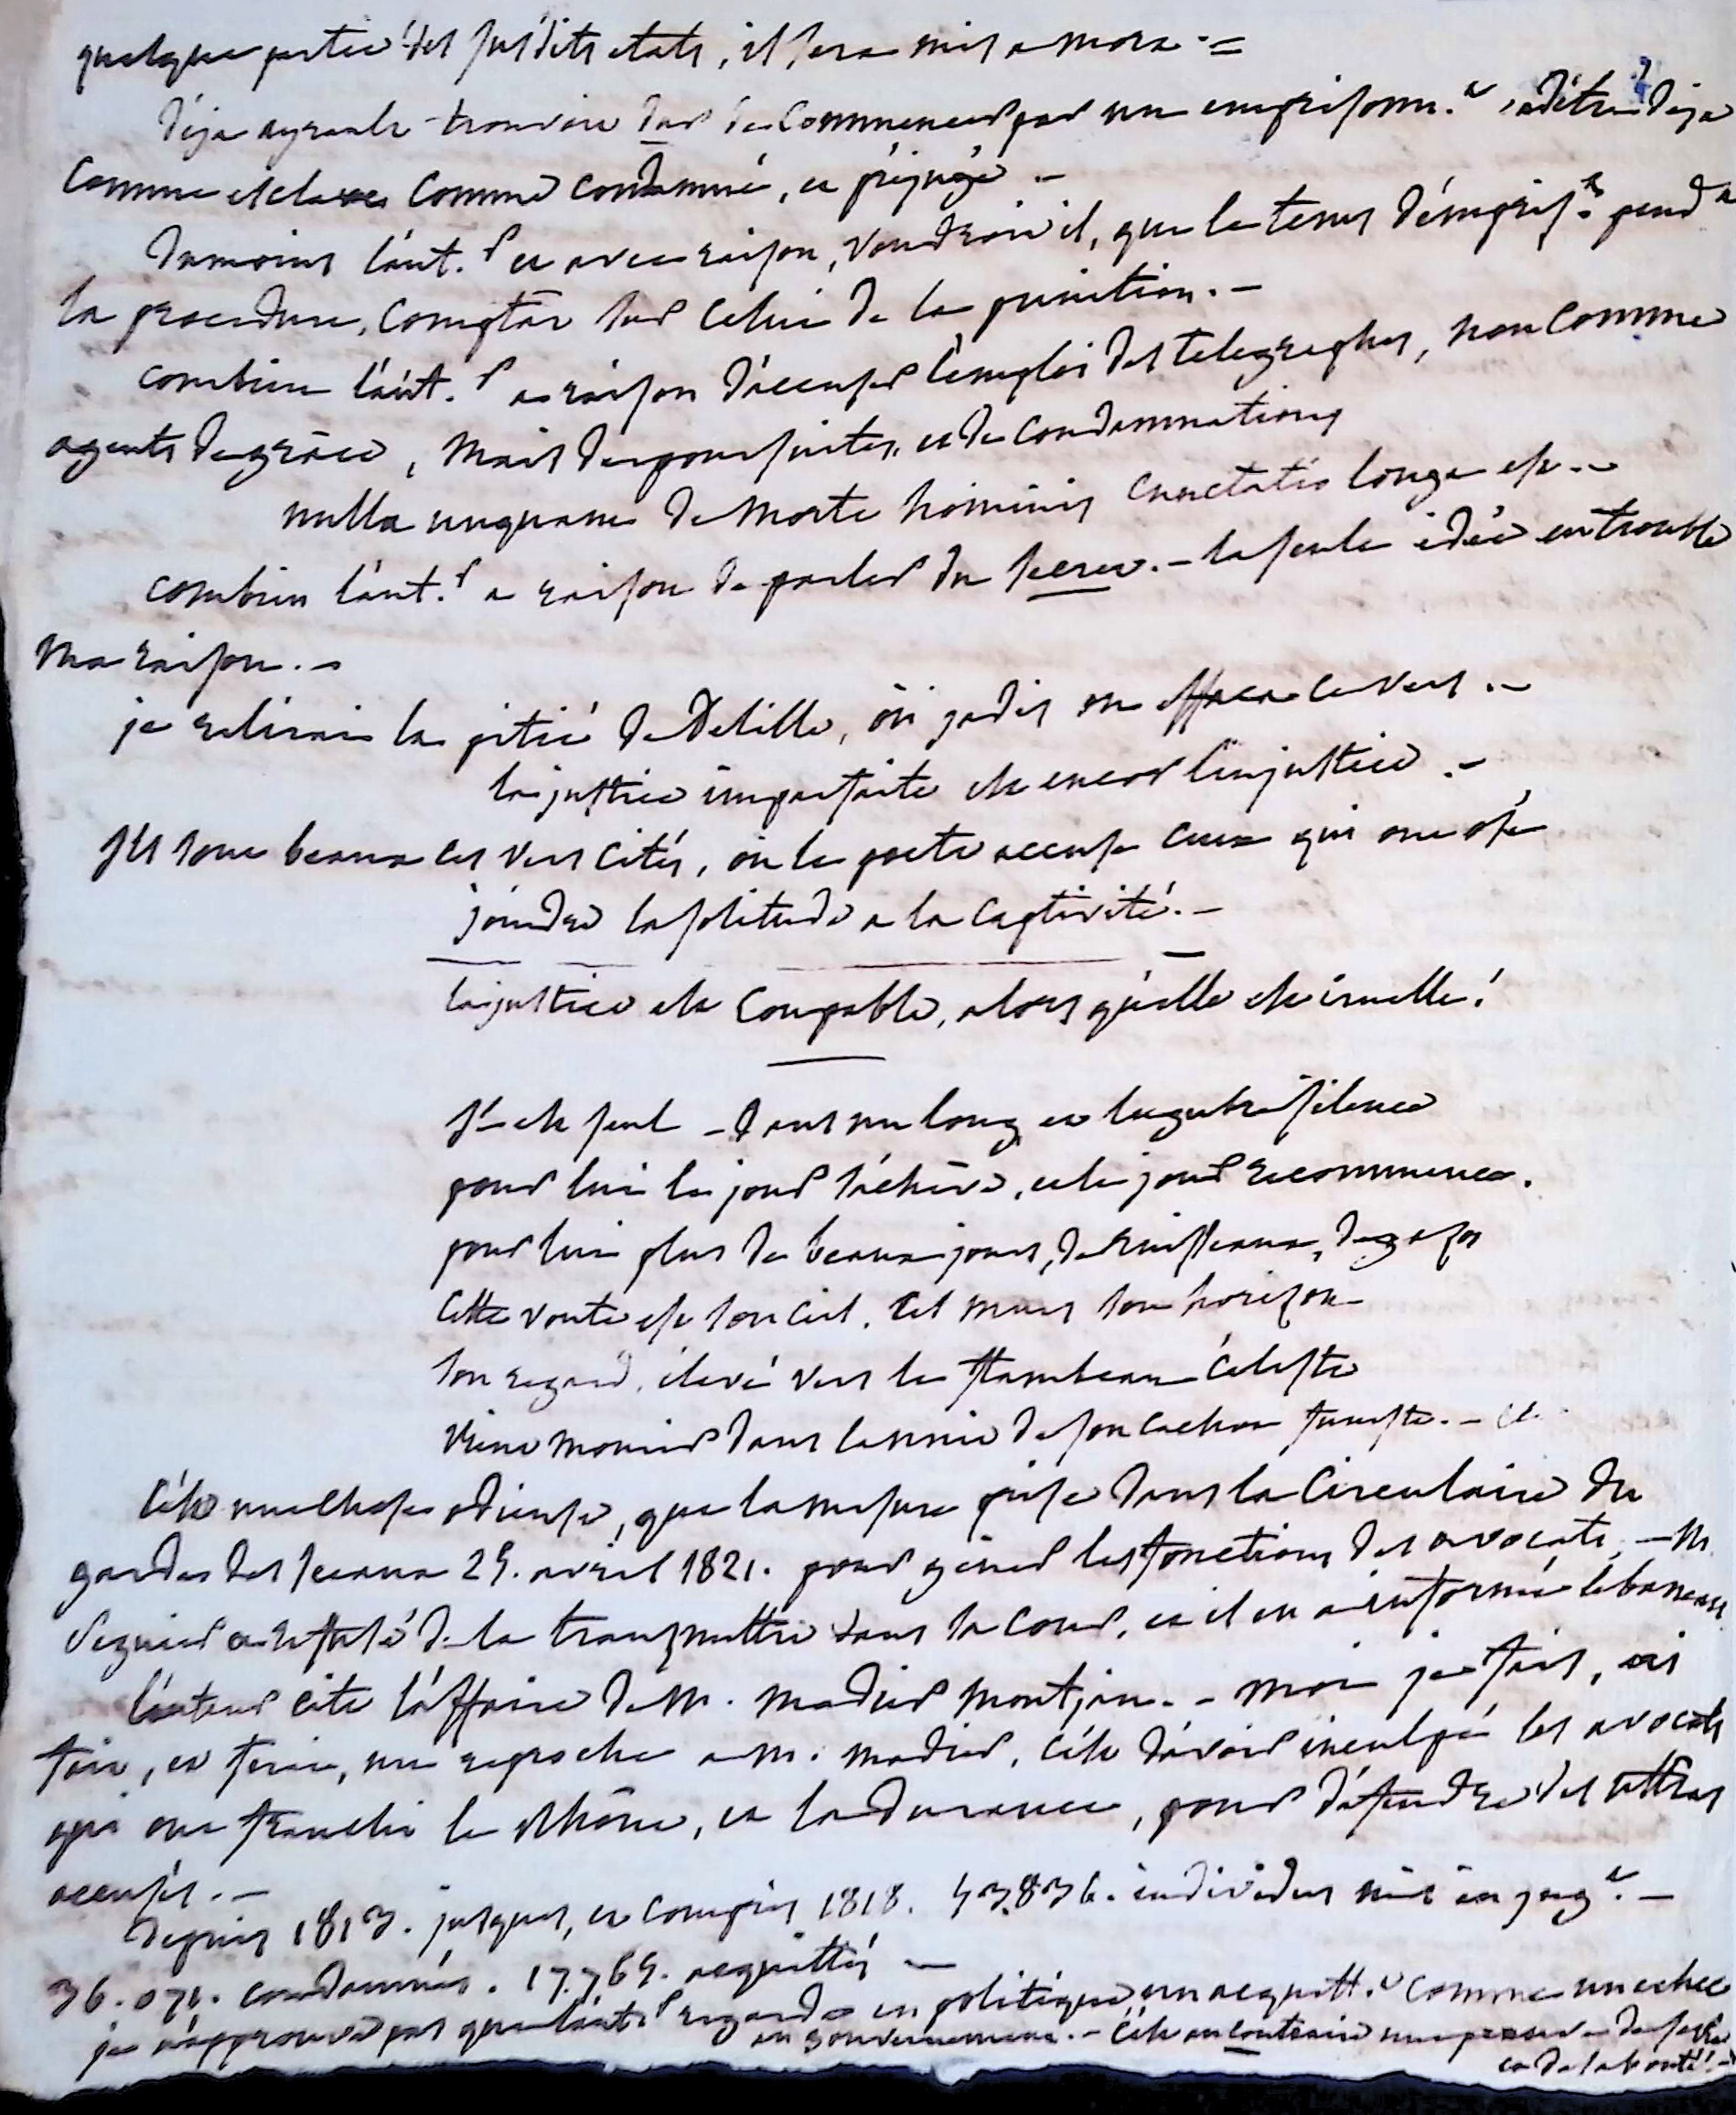 quelque partie des susdits etats, il sera mis a mort. =
déja ayrault trouvoit dur de commencer par un emprisonn.t, d'être déja
comme esclave comme condamné, et préjugé. -
du moins l'aut.r et avec raison, voudroit il, que le tems d'empris.t pend.t
la procedure, comptât sur celui de la punition. -
combien l'aut.r a raison d'accuser l'emploi des telegraphes, non comme
agents de grâce, mais de poursuites, et de condamnations
nulla unquam de morte hominis cunctatio longa est. -
combien l'aut.r a raison de parler du secret. - la seule idée en trouble
ma raison. -
je relirai la pitié de Delille, où jadis on effaca ce vers. -
la justice imparfaite est encor l'injustice. -
ils sont beaux ces vers cités, où le poete accuse ceux qui ont osé
joindre la solitude a la captivité. -
la justice est coupable, alors qu'elle est cruelle!
il est seul - dans un long et lugubre silence
pour lui le jour s'achève, et le jour recommence.
pour lui plus de beaux jours, de ruisseaux, de gazon
cette voute est son ciel, ces murs son horizon
son regard, élevé vers le flambeau céleste
vient mourir dans la nuit de son cachot funeste. -
c'est une chose odieuse, que la mesure prise dans la circulaire du
garde des sceaux 29. avril 1821. pour gêner les fonctions des avocats, - M.
Seguier a refusé de la transmettre dans sa cour, et il en a informé le barreau
l'auteur cite l'affaire de M. madier montjau. - moi je fais, ai
fait, et ferai, un reproche a M. madier, c'est d'avoir inculpé les avocats
qui ont franchi le Rhône, et la durance, pour défendre des
accusés. -
depuis 1813. jusques, et compris 1818. 53.836. individus mis en jug.t -
36.071. condamnés. 17.765. acquittés -
je n'approuve pas que l'aut.r regarde en politique, un acquitt.t comme un echec
au gouvernement. - c'est au contraire une preuve de sa
et de la bonté! -